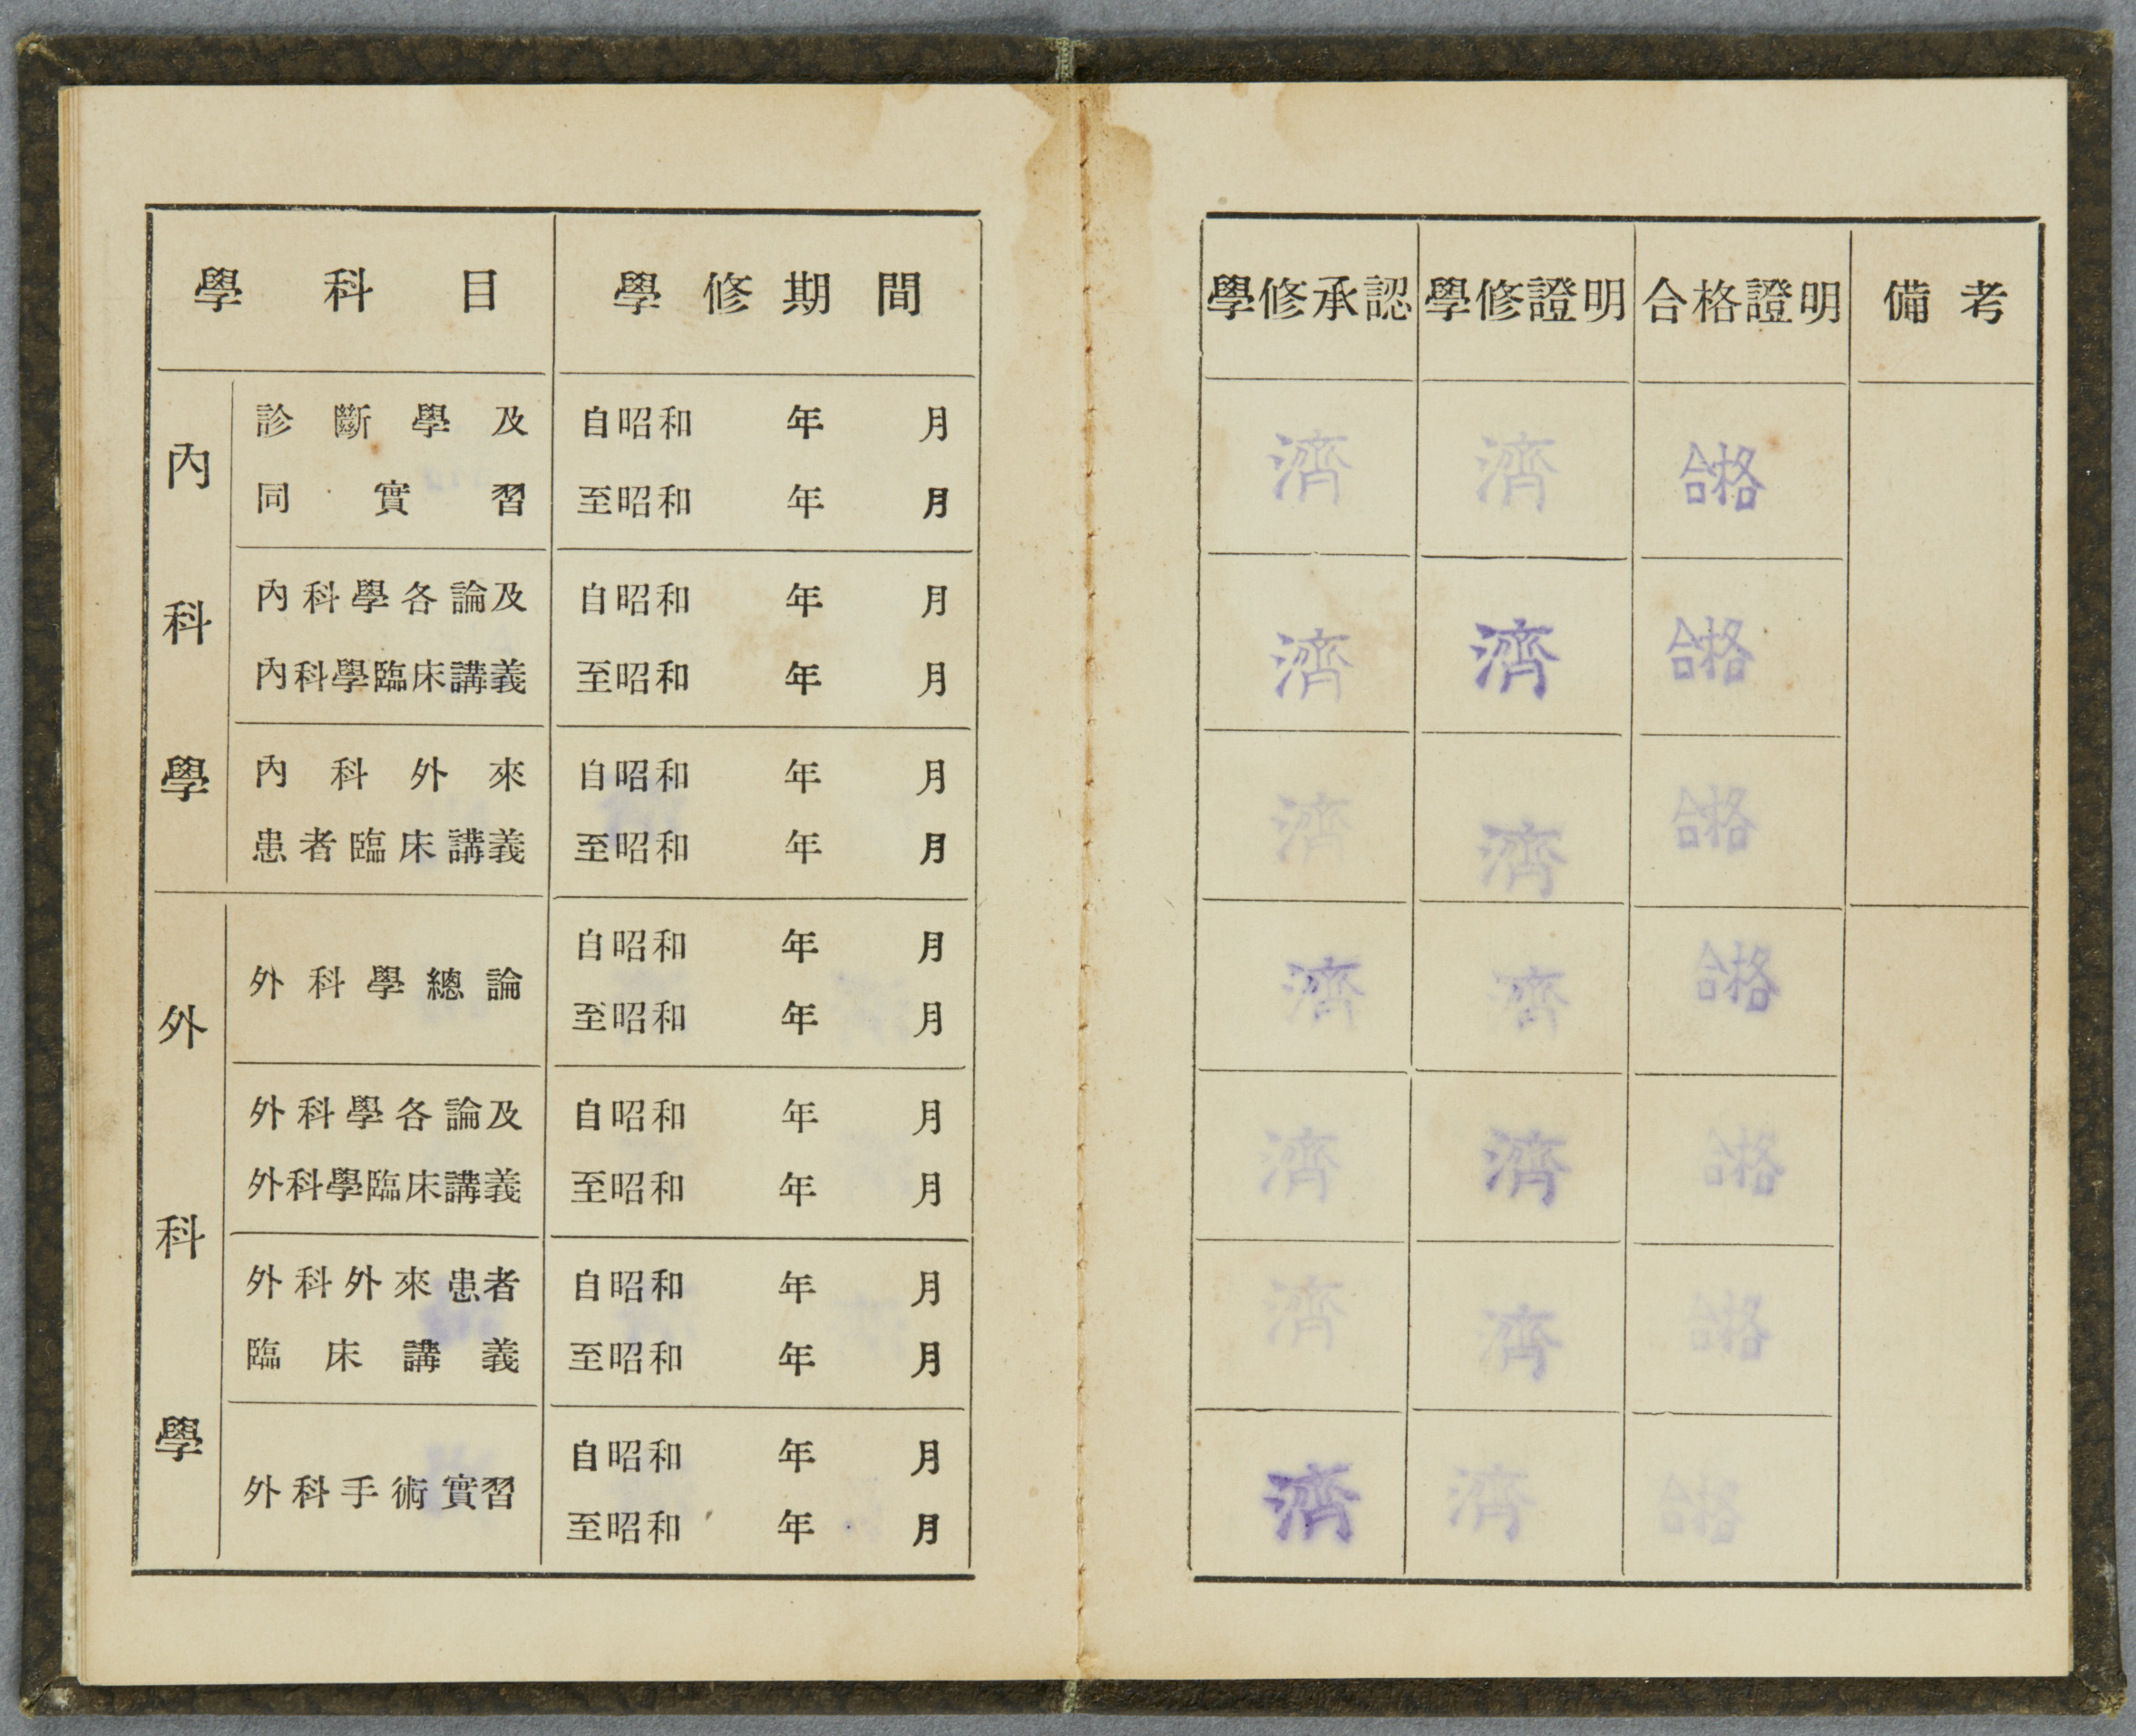 學科目 學修期間 學修承認 學修證明 合格證明 備考
內科學
診斷學及 自昭和 年 月
同實習 至昭和 年 月
濟 濟 合格
內科學各論及 自昭和 年 月
內科學臨床講義 至昭和 年 月
濟 濟 合格
內科外來 自昭和 年 月
患者臨床講義 至昭和 年 月
濟 濟 合格
外科學
外科學總論
自昭和 年 月
至昭和 年 月
濟 濟 合格
外科學各論及 自昭和 年 月
外科學臨床講義 至昭和 年 月
濟 濟 合格
外科外來患者 自昭和 年 月
臨床講義 至昭和 年 月
濟 濟 合格
外科手術實習
自昭和 年 月
至昭和 年 月
濟 濟 合格